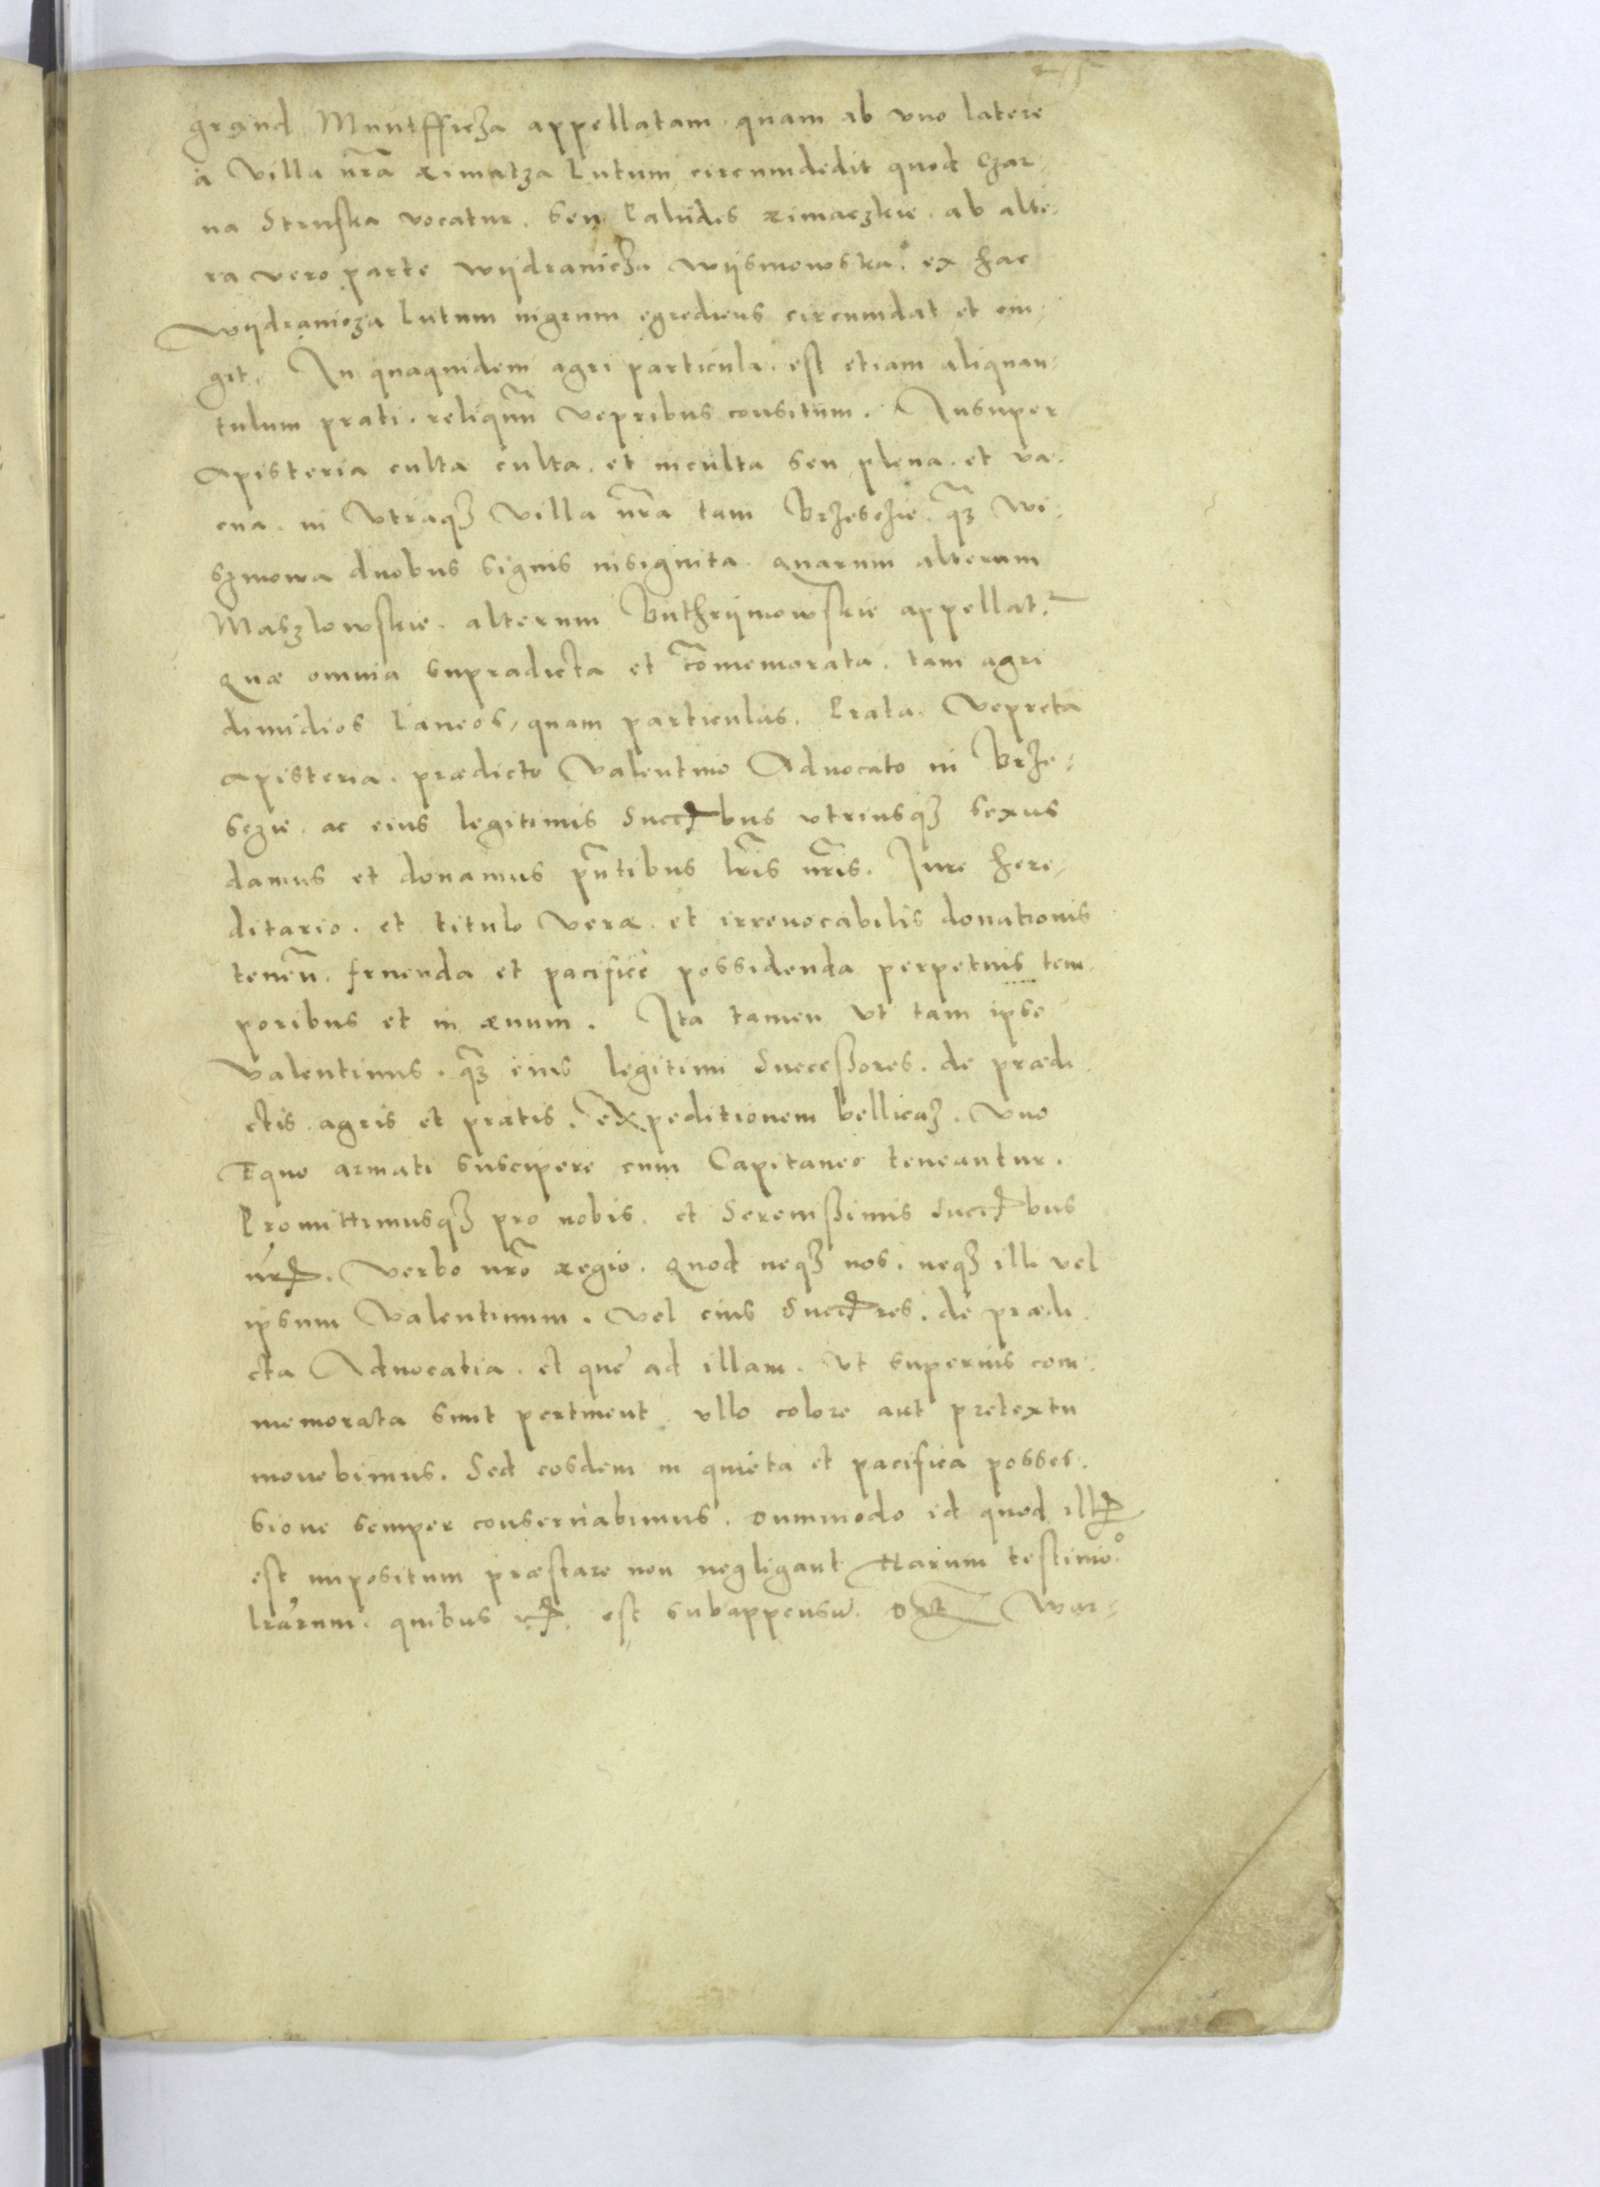 grand Muntfficza appellatam quam ab vno latere
a villa nr̃a Rimatza Lutum circumdedit quod Czar-
na Struska vocatur. seu Paludes Rimaczkie. ab alte-
ra vero parte wijdranicza wijsmowska. ex hac
wijdranicza Lutum nigrum egrediens circumdat et cin-
git. In quaquidem agri particula. est etiam aliquan-
tulum prati. reliquũ vepribus consitum. Insuper
Apisteria culta culta. et inculta seu plena. et va-
cua. in vtraqȝ villa nr̃a tam Brzesczie. qȝ̃ Wi-
szmowa duobus signis insignita. quarum alterum
Maszlowskie. alterum Buthrijmowskie appellat.
Quæ omnia supradicta et cõmemorata. tam agri
dimidios Laneos, quam particulas. Prata. Vepreta
Apisteria. prædicto Valentino Aduocato in Brze-
sczie. ac eius legitimis Succꝝbus vtriusqȝ sexus
damus et donamus pñtibus lr̃is nr̃is. Jure here-
ditario. et titulo veræ. et irreuocabilis donationis
teneñ. fruenda et pacificè possidenda perpetuis tem-
poribus et in æuum. Ita tamen vt tam ipse
Valentinus. qȝ̃ eius legitimi Successores. de prædi-
ctis agris et pratis. expeditionem bellicaȝ. vno
Equo armati suscipere cum Capitaneo teneantur.
Promittimusqȝ pro nobis. et Serenissimis Succꝝbus
nrꝝ. verbo nr̃o Regio. Quod neqȝ nos. neqȝ illi vel
ipsum Valentinum. vel eius Succꝝres. de prædi-
cta Aduocatia. et que ad illam. vt superius com-
memorata sunt pertinent vllo colore aut pretextu
mouebimus. Sed eosdem in quieta et pacifica posses-
sione semper conseruabimus. dummodo id quod illꝝ
est impositum præstare non negligant Harum testimo.
lrarum. quibus est subappensũ. Dat̃ War-